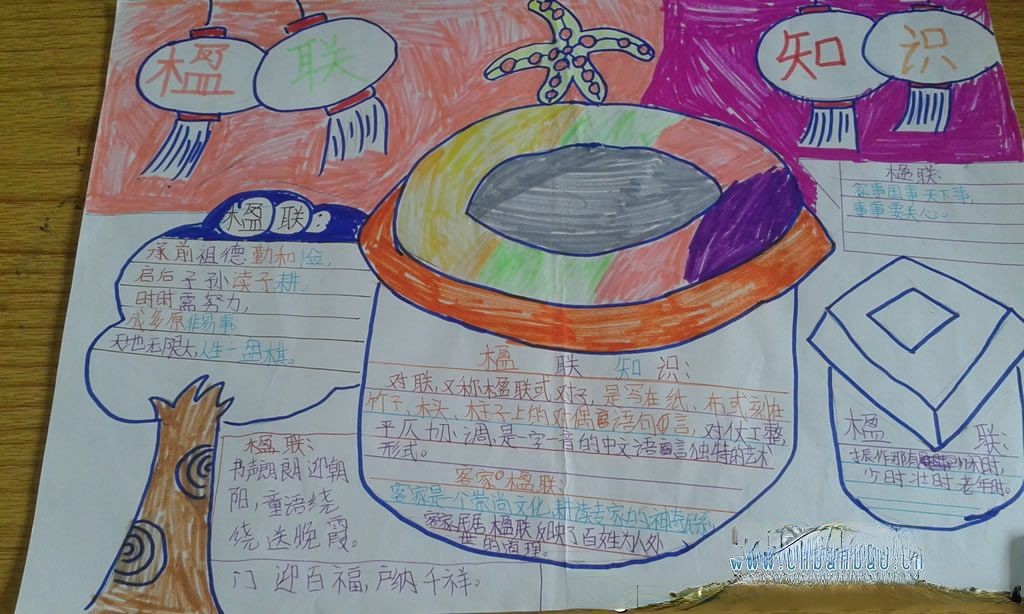 楹 联
知 识
楹联:
家事国事天下事,
事事要关心。
楹联:
承前祖德勤和俭,
启后子孙读子耕。
时时需努力,
非易事
天地无限大,人生一盘棋。
楹 联 知 识:
对联,又称楹联或对子,是写在纸、布或刻在
竹子、木头、柱子上的对偶语句言,对仗工整,
平仄 协调,是一字一音的中文语言独特的艺术
形式。
客家楹联
客家是一个崇尚文化,
楹联反映了百姓为人处
世的道理。
楹 联:
振作那有闲时,
少时壮时老年时。
楹联:
书声朗朗迎朝
阳,童语绕
绕送晚霞。
门迎百福,户纳千祥。